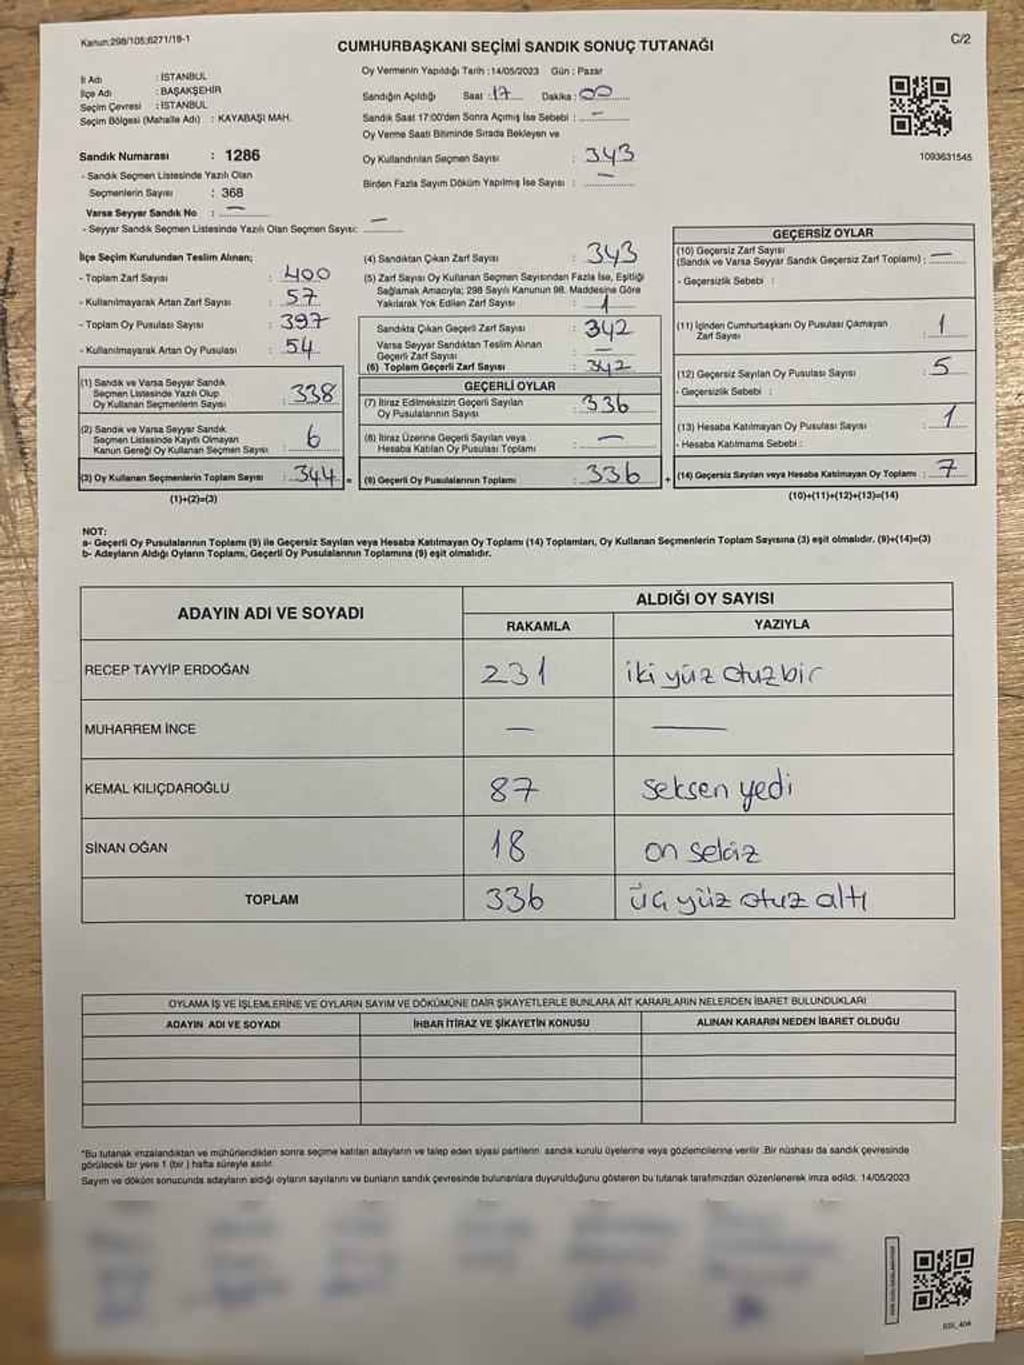 Kanun:298/105;6271/19-1
C/2
CUMHURBAŞKANI SEÇİMİ SANDIK SONUÇ TUTANAĞI
İl Adı : İSTANBUL
İlçe Adı : BAŞAKŞEHİR
Seçim Çevresi : İSTANBUL
Seçim Bölgesi (Mahalle Adı) : KAYABAŞI MAH.
Oy Vermenin Yapıldığı Tarih : 14/05/2023 Gün : Pazar
Sandığın Açıldığı Saat : 17 Dakika : 00
Sandık Saat 17:00'den Sonra Açımış İse Sebebi : —
Oy Verme Saati Bitiminde Sırada Bekleyen ve
Oy Kullandırılan Seçmen Sayısı : 343
Birden Fazla Sayım Döküm Yapılmış İse Sayısı : —
1093631545
Sandık Numarası : 1286
- Sandık Seçmen Listesinde Yazılı Olan
Seçmenlerin Sayısı : 368
Varsa Seyyar Sandık No : —
- Seyyar Sandık Seçmen Listesinde Yazılı Olan Seçmen Sayısı: —
İlçe Seçim Kurulundan Teslim Alınan;
- Toplam Zarf Sayısı : 400
- Kullanılmayarak Artan Zarf Sayısı : 57
- Toplam Oy Pusulası Sayısı : 397
- Kullanılmayarak Artan Oy Pusulası : 54
(1) Sandık ve Varsa Seyyar Sandık
Seçmen Listesinde Yazılı Olup
Oy Kullanan Seçmenlerin Sayısı : 338
(2) Sandık ve Varsa Seyyar Sandık
Seçmen Listesinde Kayıtlı Olmayan
Kanun Gereği Oy Kullanan Seçmen Sayısı : 6
(3) Oy Kullanan Seçmenlerin Toplam Sayısı : 344 =
(1)+(2)=(3)
(4) Sandıktan Çıkan Zarf Sayısı : 343
(5) Zarf Sayısı Oy Kullanan Seçmen Sayısından Fazla İse, Eşitliği
Sağlamak Amacıyla; 298 Sayılı Kanunun 98. Maddesine Göre
Yakılarak Yok Edilen Zarf Sayısı : 1
Sandıkta Çıkan Geçerli Zarf Sayısı : 342
Varsa Seyyar Sandıktan Teslim Alınan
Geçerli Zarf Sayısı : —
(6) Toplam Geçerli Zarf Sayısı : 342
GEÇERLİ OYLAR
(7) İtiraz Edilmeksizin Geçerli Sayılan
Oy Pusulalarının Sayısı : 336
(8) İtiraz Üzerine Geçerli Sayılan veya
Hesaba Katılan Oy Pusulası Toplamı : —
(9) Geçerli Oy Pusulalarının Toplamı : 336 +
GEÇERSİZ OYLAR
(10) Geçersiz Zarf Sayısı
(Sandık ve Varsa Seyyar Sandık Geçersiz Zarf Toplamı) : —
- Geçersizlik Sebebi :
(11) İçinden Cumhurbaşkanı Oy Pusulası Çıkmayan
Zarf Sayısı : 1
(12) Geçersiz Sayılan Oy Pusulası Sayısı : 5
- Geçersizlik Sebebi :
(13) Hesaba Katılmayan Oy Pusulası Sayısı : 1
- Hesaba Katılmama Sebebi :
(14) Geçersiz Sayılan veya Hesaba Katılmayan Oy Toplamı : 7
(10)+(11)+(12)+(13)=(14)
NOT:
a- Geçerli Oy Pusulalarının Toplamı (9) ile Geçersiz Sayılan veya Hesaba Katılmayan Oy Toplamı (14) Toplamları, Oy Kullanan Seçmenlerin Toplam Sayısına (3) eşit olmalıdır. (9)+(14)=(3)
b- Adayların Aldığı Oyların Toplamı, Geçerli Oy Pusulalarının Toplamına (9) eşit olmalıdır.
ADAYIN ADI VE SOYADI ALDIĞI OY SAYISI
RAKAMLA YAZIYLA
RECEP TAYYİP ERDOĞAN 231 iki yüz otuz bir
MUHARREM İNCE — —
KEMAL KILIÇDAROĞLU 87 seksen yedi
SİNAN OĞAN 18 on sekiz
TOPLAM 336 üç yüz otuz altı
OYLAMA İŞ VE İŞLEMLERİNE VE OYLARIN SAYIM VE DÖKÜMÜNE DAİR ŞİKAYETLERLE BUNLARA AİT KARARLARIN NELERDEN İBARET BULUNDUKLARI
ADAYIN ADI VE SOYADI İHBAR İTİRAZ VE ŞİKAYETİN KONUSU ALINAN KARARIN NEDEN İBARET OLDUĞU
*Bu tutanak imzalandıktan ve mühürlendikten sonra seçime katılan adayların ve talep eden siyasi partilerin sandık kurulu üyelerine veya gözlemcilerine verilir .Bir nüshası da sandık çevresinde
görülecek bir yere 1 (bir ) hafta süreyle asılır.
Sayım ve döküm sonucunda adayların aldığı oyların sayılarını ve bunların sandık çevresinde bulunanlara duyurulduğunu gösteren bu tutanak tarafımızdan düzenlenerek imza edildi. 14/05/2023